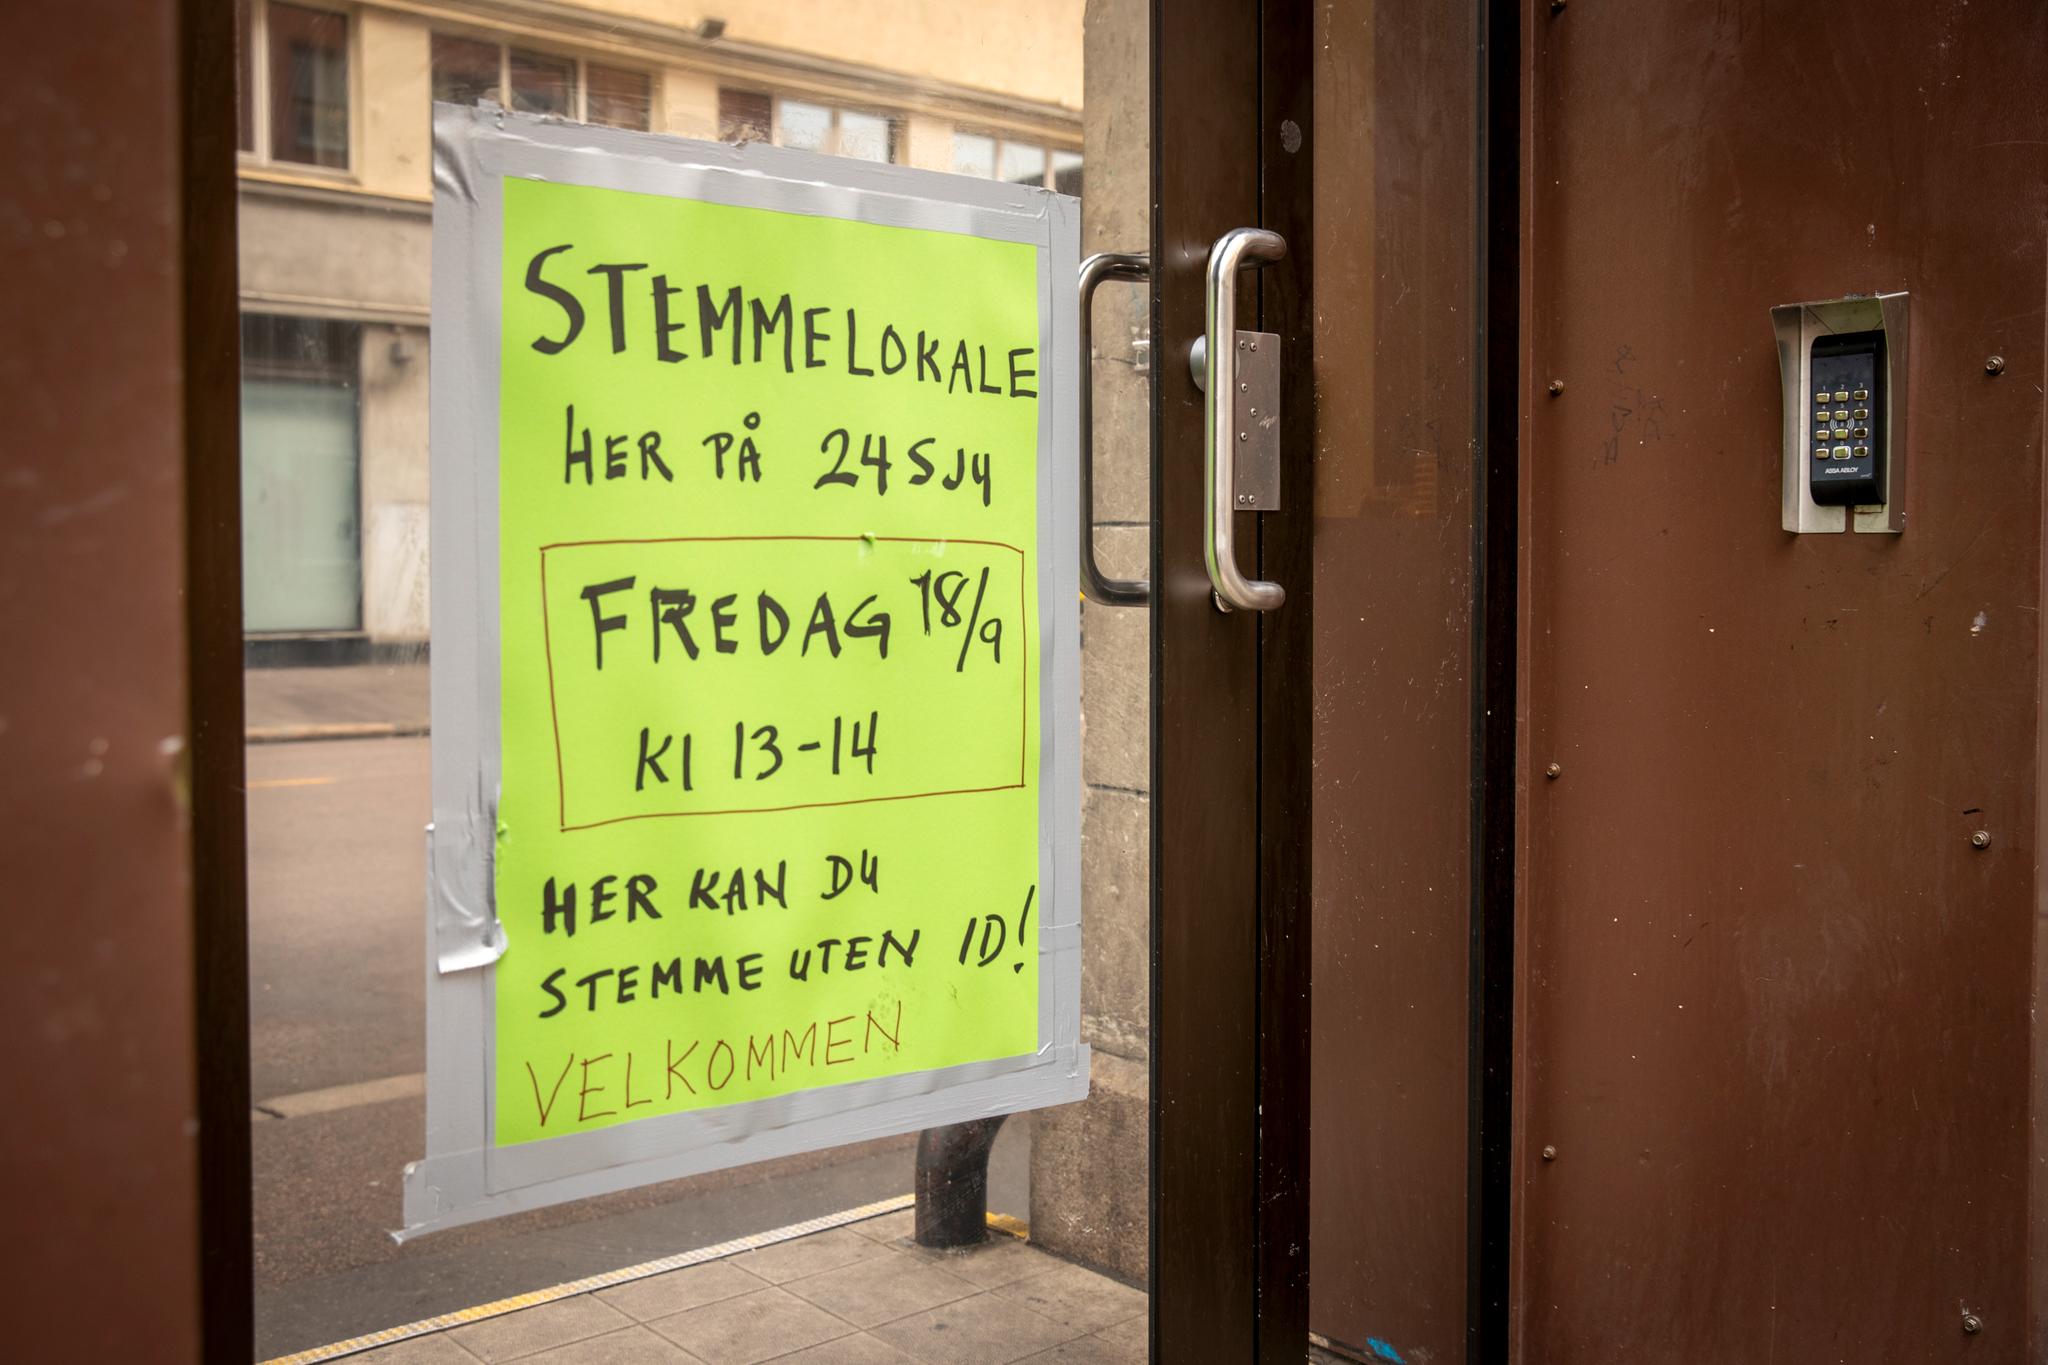 STEMMELOKALE
HER PÅ 24SJU
FREDAG 18/9
Kl 13-14
HER KAN DU
STEMME UTEN ID!
VELKOMMEN
1 2 3
4 5 6
7 8 9
A 0 B
ASSA ABLOY